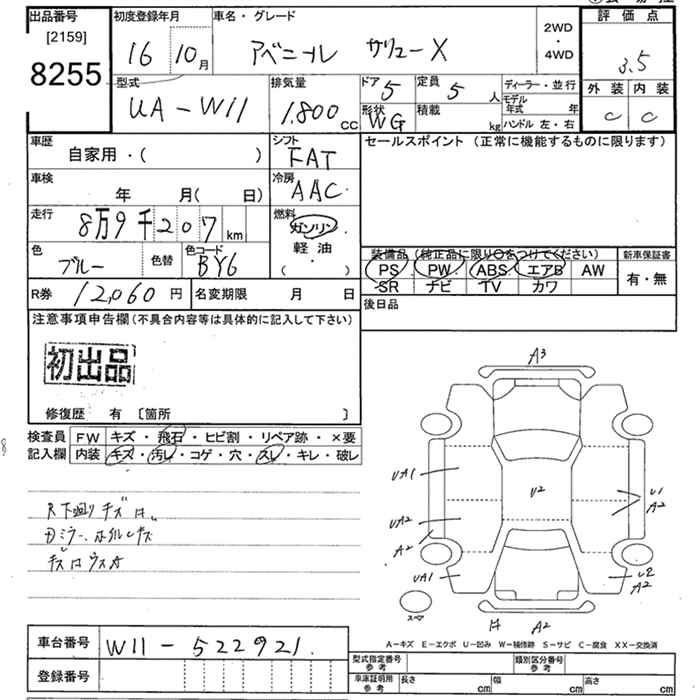 出品番号
[2159]
8255
初度登録年月
16 10月
車名・グレード
アベニール サリューX
2WD
・
4WD
評価点
3.5
外装 内装
C C
型式
UA-W11
排気量
1,800 CC
ドア 5
定員 5 人
形状 WG
積載 kg
ディーラー・並行
モデル年式 年
ハンドル 左・右
車歴
自家用・( )
シフト
FAT
セールスポイント (正常に機能するものに限ります)
車検
年 月( 日)
冷房
AAC
走行
8万9千207 km
燃料
ガソリン
軽油
・
( )
色
ブルー
色替
色コード
BY6
装備品 (純正品に限り○をつけてください)
PS PW ABS エアB AW
SR ナビ TV カワ
新車保証書
有・無
R券 12,060 円
名変期限 月 日
後日品
注意事項申告欄 (不具合内容等は具体的に記入して下さい)
初出品
修復歴 有 [箇所 ]
検査員
記入欄
FW キズ・飛石・ヒビ割・リペア跡・×要
内装 キズ・汚レ・コゲ・穴・スレ・キレ・破レ
R下廻りキズ
キズ
A3
UA1
U2
U1
A2
UA2
A2
UA1
U2
A2
A2
A-キズ E-エクボ U-凹み W-補修跡 S-サビ C-腐食 XX-交換済
車台番号 W11-522921
登録番号
型式指定番号
参考
類別区分番号
参考
車庫証明用
参考
長さ cm 幅 cm 高さ cm